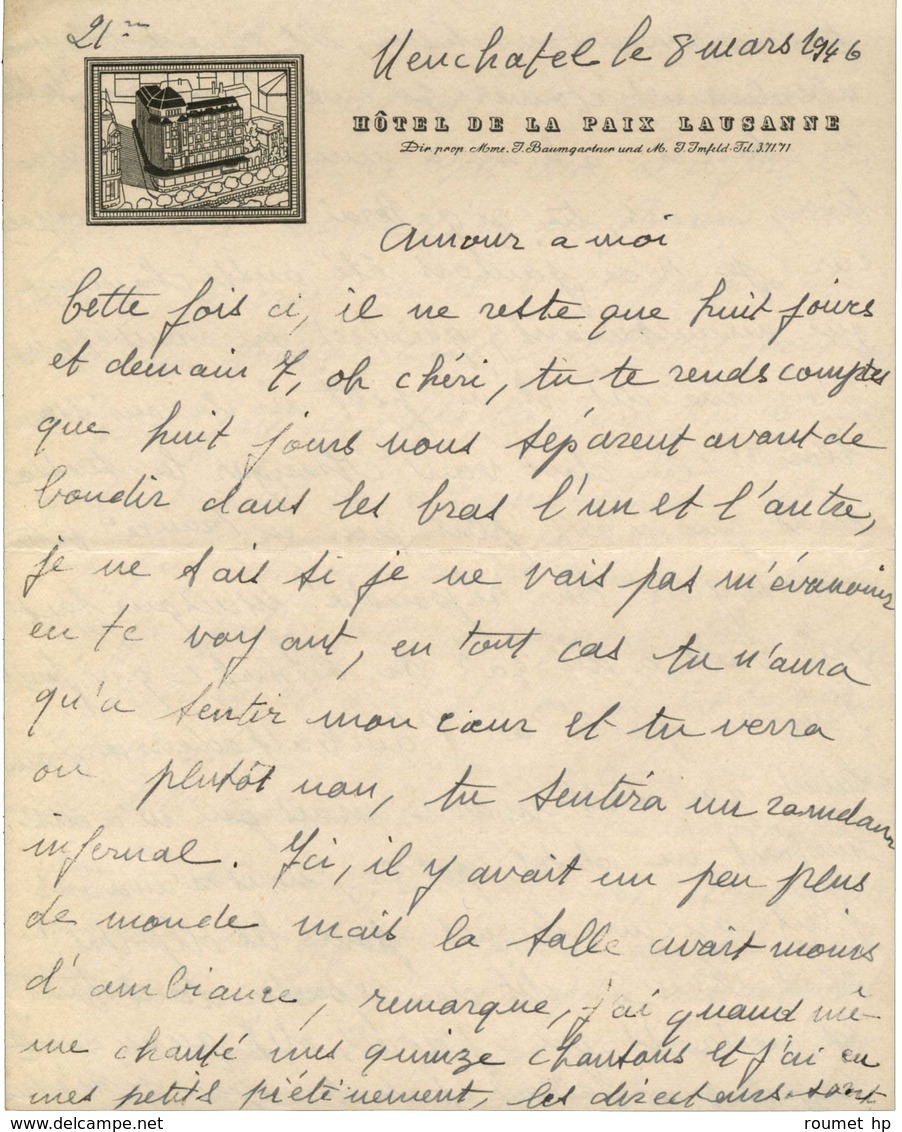 21
Neuchatel le 8 mars 1946
HÔTEL DE LA PAIX LAUSANNE
Dir. prop. Mme. J. Baumgartner und M. J. Imfeld - Tel. 3.71.71
Amour a moi
Cette fois ci, il ne reste que huit jours
et demain 7, oh chéri, tu te rends comptes
que huit jours nous séparent avant de
bondir dans les bras l'un et l'autre,
je ne sais si je ne vais pas m'évanouir
en te voyant, en tout cas tu n'aura
qu'a sentir mon cœur et tu verra
ou plutôt non, tu sentira un ramdam
infernal. Ici, il y avait un peu plus
de monde mais la salle avait moins
d'ambiance, remarque, j'ai quand mê-
me chanté mes quinze chansons et j'ai eu
mes petits piétinement, les directeurs sont
roumet hp